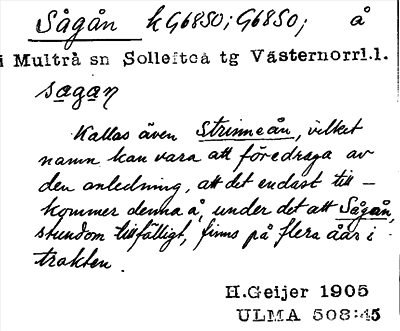 Sågån kG6850; G6850; å
i Multrå sn Sollefteå tg Västernorrl.l.
sagan
Kallas även Strinneån, vilket
namn kan vara att föredraga av
den anledning, att det endast till-
kommer denna å, under det att Sågån,
stundom tillfälligt, finns på flera åar i
trakten.
H.Geijer 1905
ULMA 508:45